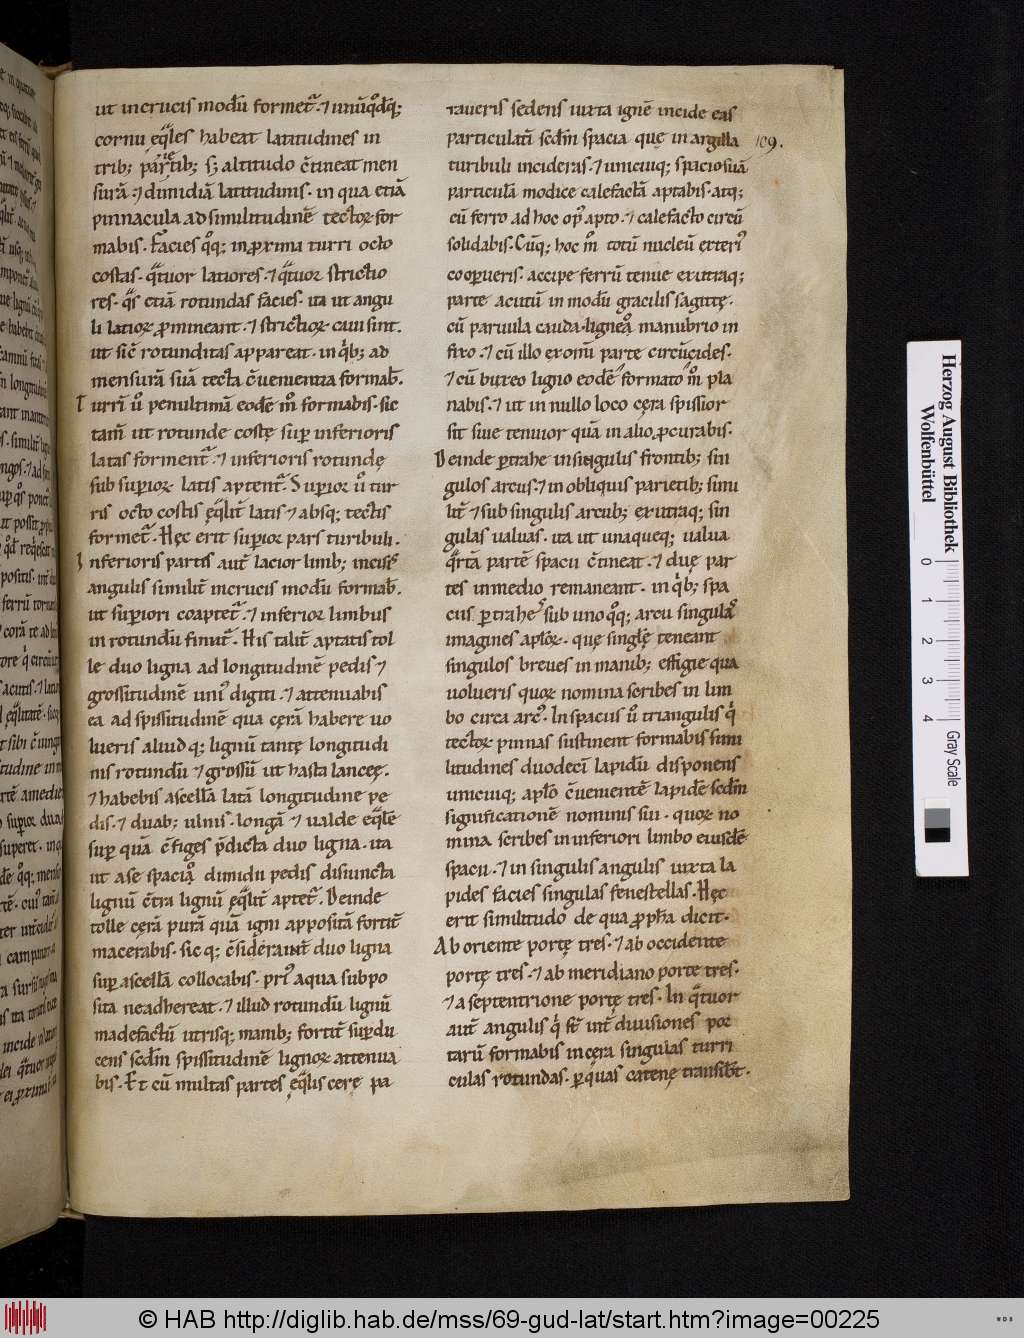 ut incrucis modū formet᷑. ⁊ unūq̊dq̢;
cornu ęq̄les habeat latitudines in
trib; parietib; s; altitudo c̄tineat men
surā ⁊ dimidiā latitudinis. in qua etiā
pinnacula ad similitudinē tector for
mabis. Facies q̊q; in proxima turri octo
costas. q̄tuor latiores. ⁊ q̄tuor strictio
res. q̄s etiā rotundas facies. ita ut angu
li latior promineant. ⁊ strictior cum sint.
ut sic̄ rotunditas appareat. in q̇b; ad
mensurā suā tecta c̄uenientia formab̄.
Turri u̇ penultimā eodē m̊ formabis. sic
tam̄ ut rotunde costę sup inferioris
latas forment᷑. ⁊ inferioris rotundę
sub superior latis aptent᷑. Superior u̇ tur
ris octo costis ęq̄lit̄ latis ⁊ absq; tectis
formet᷑. Hęc erit superior pars turibuli.
Inferioris partis aut̄ lacior limb; incisis
angulis similit̄ incrucis modū formab̄.
ut superiori coaptet᷑. ⁊ inferior limbus
in rotundū finiit᷑. His talit̄ aptatis tol
le duo ligna ad longitudinē pedis ⁊
grossitudinē uni᷒ digiti. ⁊ attenuabis
ea ad spissitudinē qua cęrā habere uo
lueris aliud q; lignū tantę longitudi
nis rotundū ⁊ grossū ut hasta lanceę.
⁊ habebis ascellā latā longitudine pe
dis. ⁊ duab; ulnis. longā ⁊ ualde eq̄lē
sup quā c̄figes p̄dicta duo ligna. ita
ut a se spacio dimidii pedis disiuncta
lignū c̄tra lignū ęq̄lit̄ aptet᷑. Deinde
tolle cerā purā quā igni appositā fortit̄
macerabis. sic q; c̄siderabunt duo ligna
sup ascellā collocabis. pri᷒ aqua subpo
sita ne adhereat. ⁊ illud rotundū lignū
madefactū utrisq; manib; fortit̄ supdu
cens scd̄m spissitudinē lignor attenua
bis. Et cū multas partes ęq̄lis cerę pa
raueris sedens iuxta ignē incide eas
particulatī scd̄m spacia quę in argilla
109.
turibuli incideras. ⁊ unicuiq; spacio suā
particulā modice calefactā aptabis. atq;
cū ferro ad hoc op᷒ apto. ⁊ calefacto circū
solidabis. Cūq; hoc m̊ totū nucleū exteri᷒
cooperueris. accipe ferrū tenue ex utraq;
parte acutū in modū gracilis sagittę.
cū paruula cauda ligneo manubrio in
fixo. ⁊ cū illo ex omi parte circūcides.
⁊ cū buxeo ligno eodē formato m̊ pla
nabis. ⁊ ut in nullo loco cęra spissior
sit siue tenuior quā in alio procurabis.
Deinde ptrahe in singulis frontib; sin
gulos arcus. ⁊ in obliquis parietib; simi
lit̄ ⁊ sub singulis arcub; ex utraq; sin
gulas ualuas. ita ut unaqueq; ualua
q̄rtā partē spacii c̄tineat. ⁊ duę par
tes in medio remaneant. in q̇b; spa
ciis ptrahes sub uno q̊q; arcu singulas
imagines aplor. quę singlę teneant
singulos breues in manib; effigie qua
uolueris quor nomina scribes in lim
bo circa arc᷒. In spaciis u̇ triangulis q̇
tector pinnas sustinent formabis simi
litudines duodeci lapidū disponens
unicuiq; aplo c̄uenientē lapidē scd̄m
significationē nominis sui. quor no
mina scribes in inferiori limbo eiusdē
spacii. ⁊ in singulis angulis iuxta la
pides facies singulas fenestellas. Hęc
erit similitudo de qua propħa dicit.
Ab oriente portę tres. ⁊ ab occidente
portę tres. ⁊ ab meridiano porte tres.
⁊ a septentrione portę tres. In q̄tuor
aut̄ angulis q̇ st̄ int̄ diuisiones por
tarū formabis in cęra singulas turri
culas rotundas. p quas catenę transibt̄.
Herzog August Bibliothek
Wolfenbüttel
0 1 2 3 4
Gray Scale
© HAB http://diglib.hab.de/mss/69-gud-lat/start.htm?image=00225